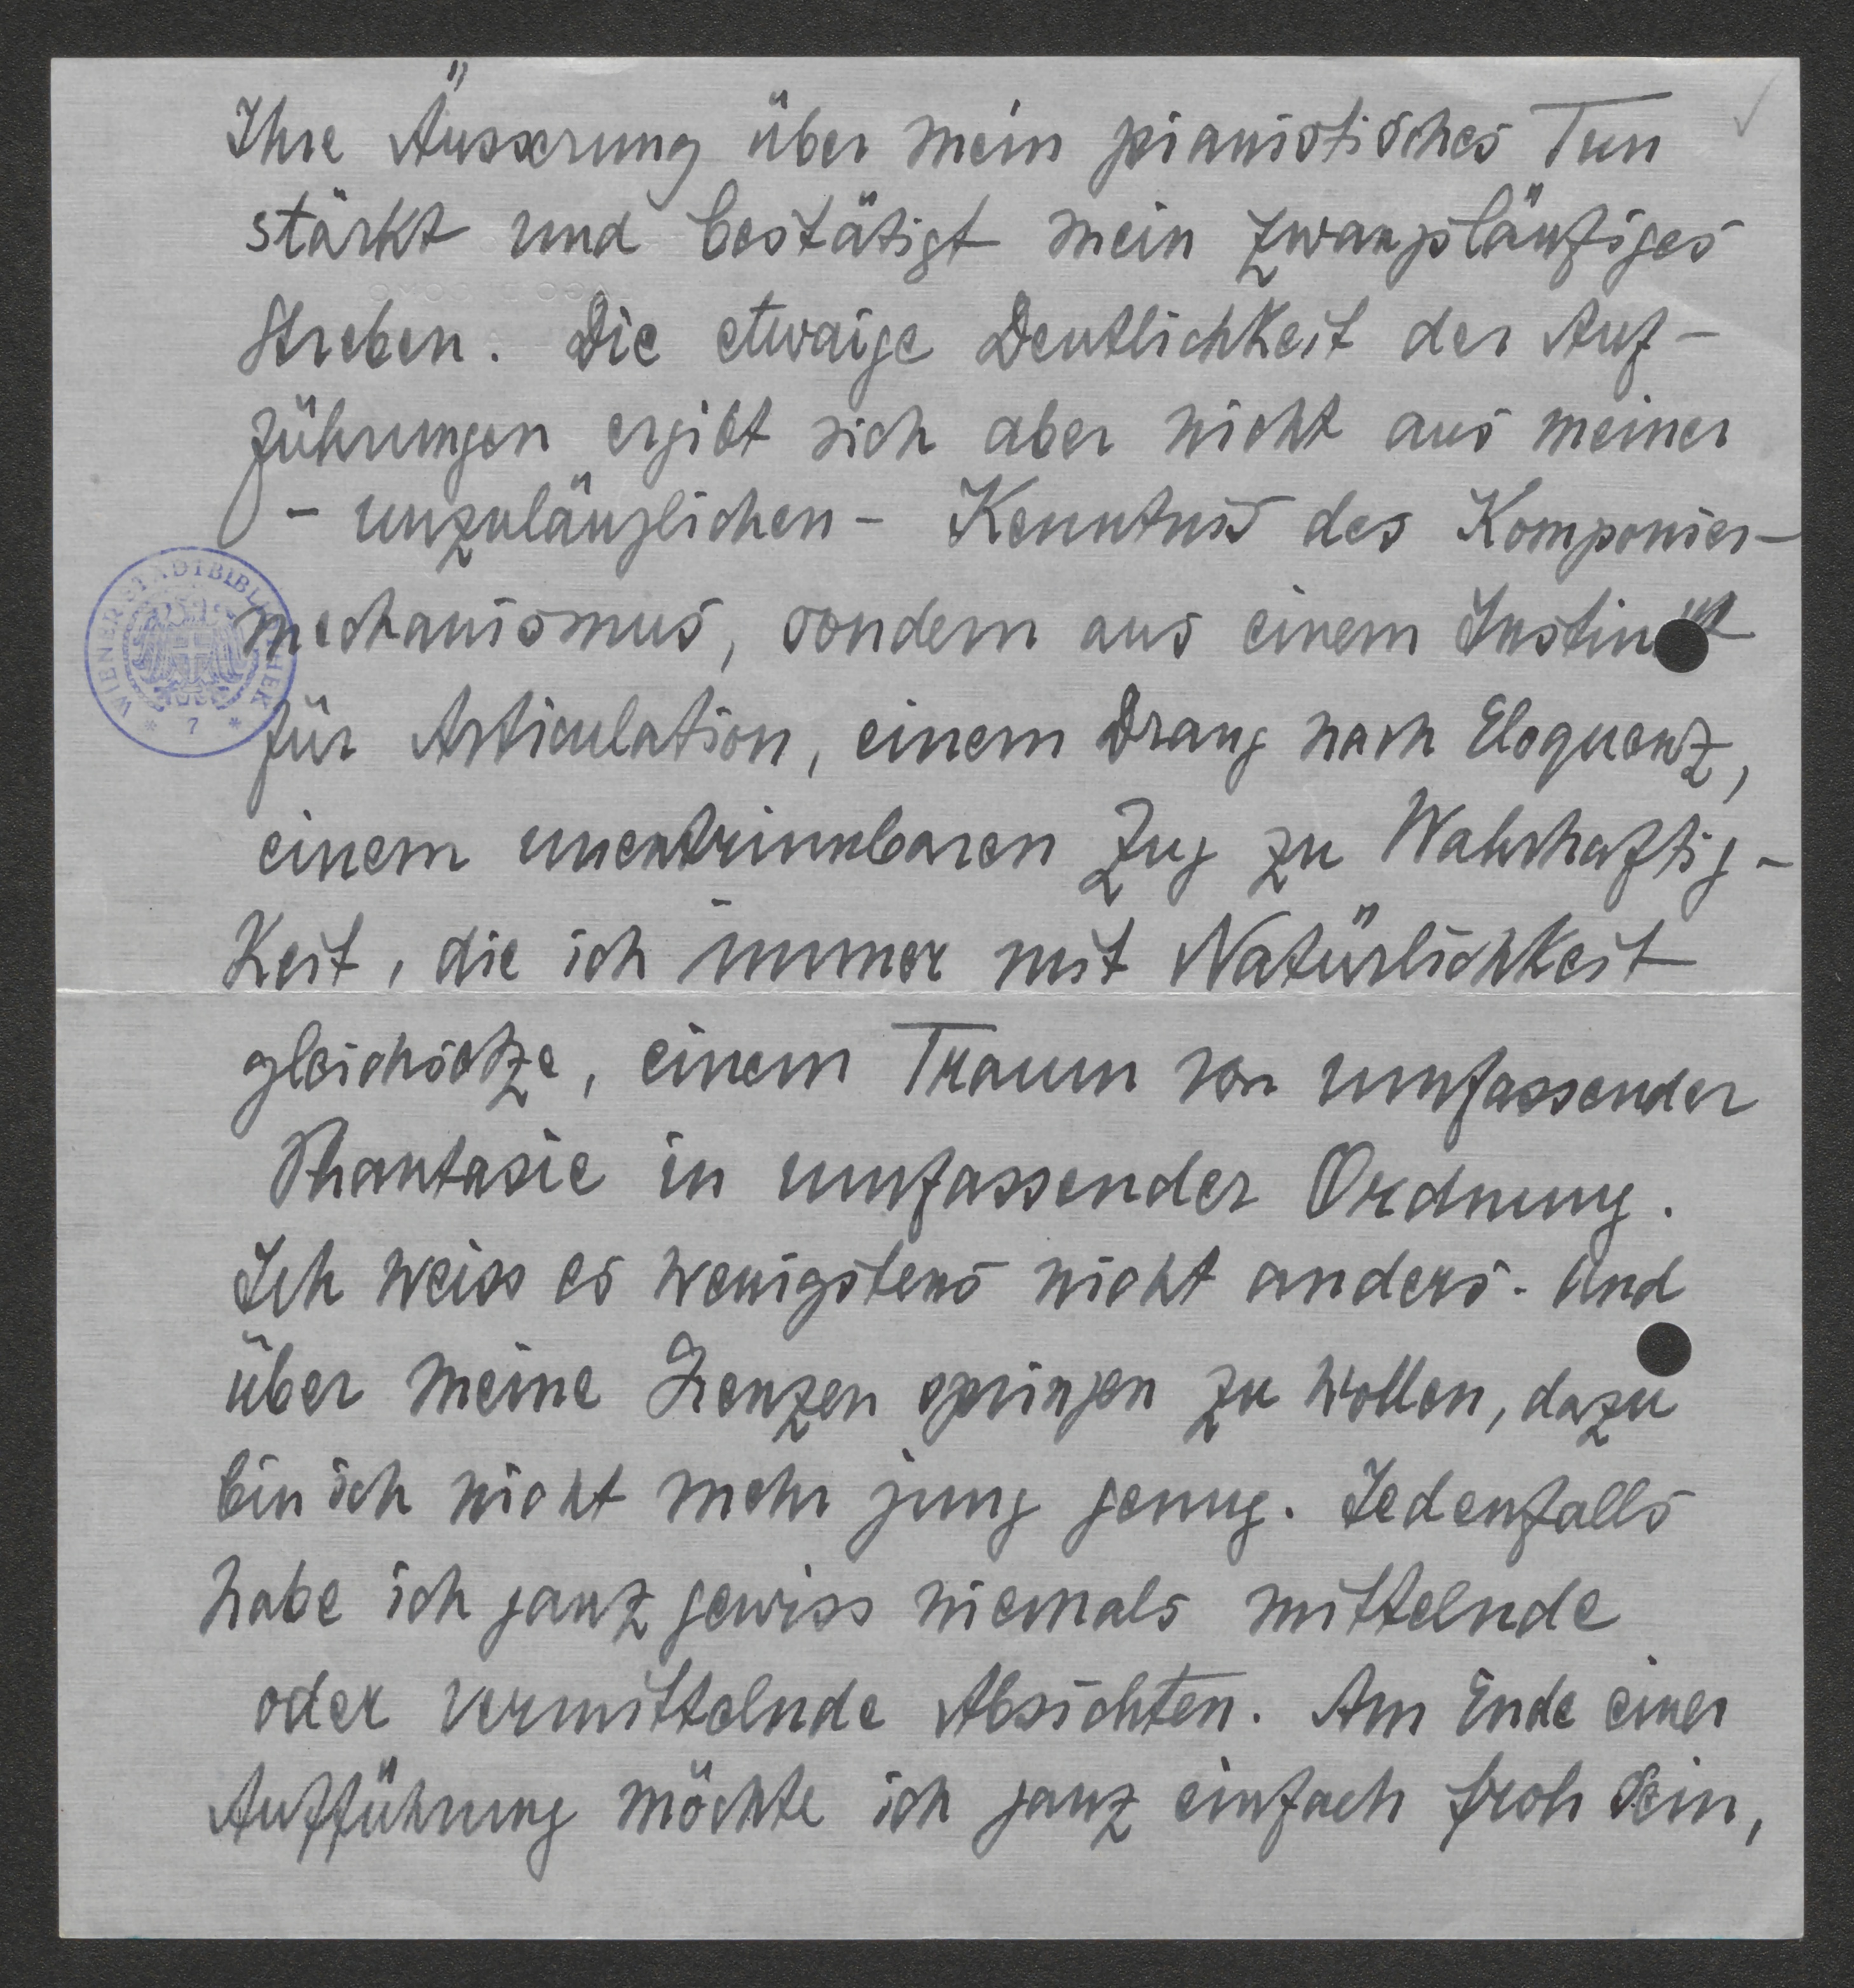 Ihre Äusserung über mein pianistisches Tun
stärkt und bestätigt mein zwangsläufiges
Streben. Die etwaige Deutlichkeit der Auf-
führungen ergibt sich aber nicht aus meiner
- unzulänglichen - Kenntnis des Komponier-
mechanismus, sondern aus einem Instinkt
für Articulation, einem Drang nach Eloquenz,
einem unentrinnbaren Zug zu Wahrhaftig-
keit, die ich immer mit Natürlichkeit
gleichsetze, einem Traum von umfassender
Phantasie in umfassender Ordnung.
Ich weiss es wenigstens nicht anders. Und
über meine Grenzen springen zu wollen, dazu
bin ich nicht mehr jung genug. Jedenfalls
habe ich ganz gewiss niemals mittelnde
oder vermittelnde Absichten. Am Ende einer
Aufführung möchte ich ganz einfach froh sein,
WIENER STADTBIBLIOTHEK
* 7 *